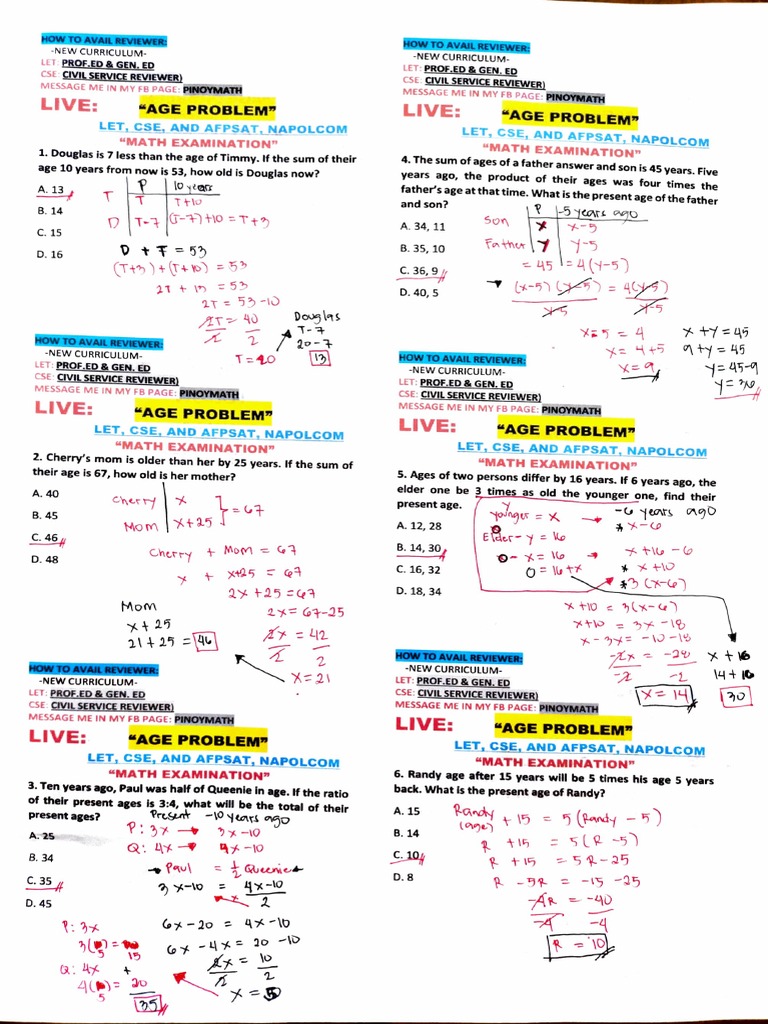 HOW TO AVAIL REVIEWER:
-NEW CURRICULUM-
LET: PROF.ED & GEN. ED
CSE: CIVIL SERVICE REVIEWER)
MESSAGE ME IN MY FB PAGE: PINOYMATH
LIVE: "AGE PROBLEM"
LET, CSE, AND AFPSAT, NAPOLCOM
"MATH EXAMINATION"
1. Douglas is 7 less than the age of Timmy. If the sum of their
age 10 years from now is 53, how old is Douglas now?
A. 13
B. 14
C. 15
D. 16
P 10 years
T T T+10
D T-7 (T-7)+10 = T+3
D + T = 53
(T+3) + (T+10) = 53
2T + 13 = 53
2T = 53-10
2T = 40
2 2
T = 20
Douglas
T-7
20-7
13
HOW TO AVAIL REVIEWER:
-NEW CURRICULUM-
LET: PROF.ED & GEN. ED
CSE: CIVIL SERVICE REVIEWER)
MESSAGE ME IN MY FB PAGE: PINOYMATH
LIVE: "AGE PROBLEM"
LET, CSE, AND AFPSAT, NAPOLCOM
"MATH EXAMINATION"
2. Cherry's mom is older than her by 25 years. If the sum of
their age is 67, how old is her mother?
A. 40
B. 45
C. 46
D. 48
Cherry x
Mom x+25
= 67
Cherry + Mom = 67
x + x+25 = 67
2x+25 = 67
2x = 67-25
2x = 42
2 2
x = 21
Mom
x + 25
21 + 25 = 46
HOW TO AVAIL REVIEWER:
-NEW CURRICULUM-
LET: PROF.ED & GEN. ED
CSE: CIVIL SERVICE REVIEWER)
MESSAGE ME IN MY FB PAGE: PINOYMATH
LIVE: "AGE PROBLEM"
LET, CSE, AND AFPSAT, NAPOLCOM
"MATH EXAMINATION"
3. Ten years ago, Paul was half of Queenie in age. If the ratio
of their present ages is 3:4, what will be the total of their
present ages?
A. 25
B. 34
C. 35
D. 45
Present -10 years ago
P: 3x → 3x-10
Q: 4x → 4x-10
Paul = 1/2 Queenie
3x-10 = 4x-10
2
6x-20 = 4x-10
6x-4x = 20-10
2x = 10
2 2
x = 5
P: 3x
3(5) = 15
Q: 4x +
4(5) = 20
35
HOW TO AVAIL REVIEWER:
-NEW CURRICULUM-
LET: PROF.ED & GEN. ED
CSE: CIVIL SERVICE REVIEWER)
MESSAGE ME IN MY FB PAGE: PINOYMATH
LIVE: "AGE PROBLEM"
LET, CSE, AND AFPSAT, NAPOLCOM
"MATH EXAMINATION"
4. The sum of ages of a father answer and son is 45 years. Five
years ago, the product of their ages was four times the
father's age at that time. What is the present age of the father
and son?
A. 34, 11
B. 35, 10
C. 36, 9
D. 40, 5
P -5 years ago
Son x x-5
Father y y-5
= 45 = 4(y-5)
(x-5)(y-5) = 4(y-5)
y-5 y-5
x-5 = 4
x = 4+5
x = 9
x + y = 45
9 + y = 45
y = 45-9
y = 36
HOW TO AVAIL REVIEWER:
-NEW CURRICULUM-
LET: PROF.ED & GEN. ED
CSE: CIVIL SERVICE REVIEWER)
MESSAGE ME IN MY FB PAGE: PINOYMATH
LIVE: "AGE PROBLEM"
LET, CSE, AND AFPSAT, NAPOLCOM
"MATH EXAMINATION"
5. Ages of two persons differ by 16 years. If 6 years ago, the
elder one be 3 times as old the younger one, find their
present age.
A. 12, 28
B. 14, 30
C. 16, 32
D. 18, 34
y -6 years ago
younger = x → x-6
Elder - y = 16
O - x = 16 → x+16-6
O = 16+x x+10
3(x-6)
x+10 = 3(x-6)
x+10 = 3x-18
x-3x = -10-18
-2x = -28
-2 -2
x = 14
x + 16
14 + 16
30
HOW TO AVAIL REVIEWER:
-NEW CURRICULUM-
LET: PROF.ED & GEN. ED
CSE: CIVIL SERVICE REVIEWER)
MESSAGE ME IN MY FB PAGE: PINOYMATH
LIVE: "AGE PROBLEM"
LET, CSE, AND AFPSAT, NAPOLCOM
"MATH EXAMINATION"
6. Randy age after 15 years will be 5 times his age 5 years
back. What is the present age of Randy?
A. 15
B. 14
C. 10
D. 8
Randy (age) + 15 = 5(Randy - 5)
R + 15 = 5(R-5)
R + 15 = 5R-25
R - 5R = -15 -25
-4R = -40
-4 -4
R = 10